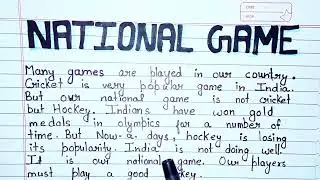 NATIONAL GAME
Many games are played in our country.
Cricket is very popular game in India.
But our national game is not cricket
but Hockey. Indians have won gold
medals in olympics for a number of
time. But Now-a days, hockey is losing
its popularity. India is not doing well
It is our national game. Our players
must play a good key.